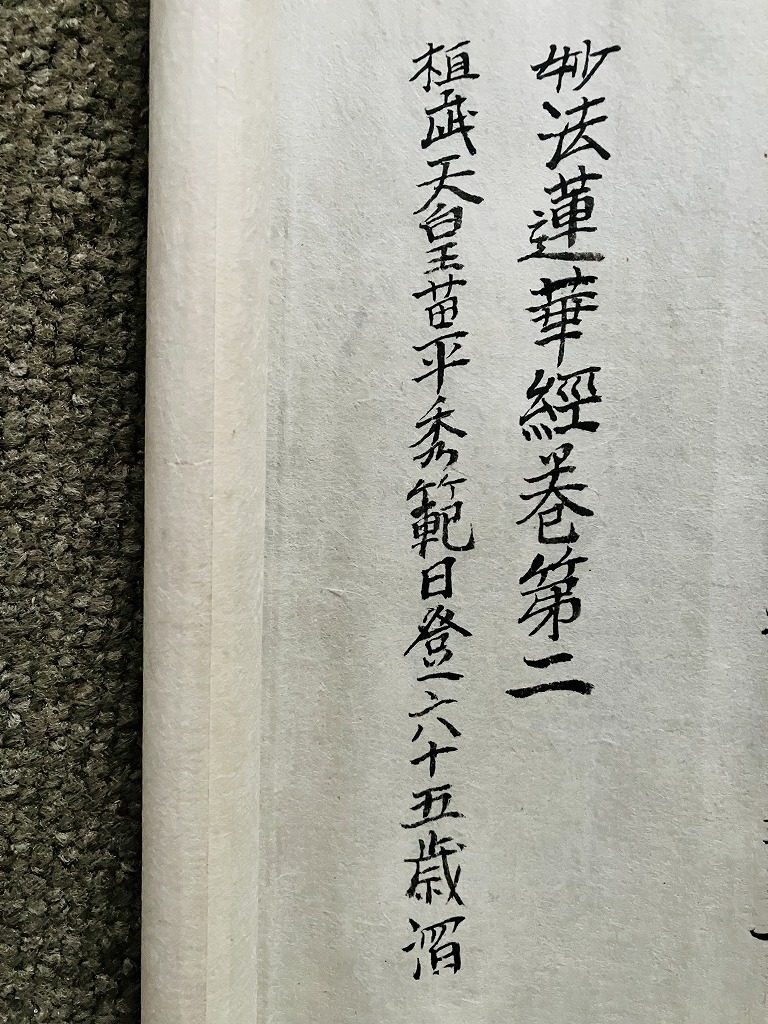 妙法蓮華經卷第二
植武天皇苗平秀範日登六十五歳